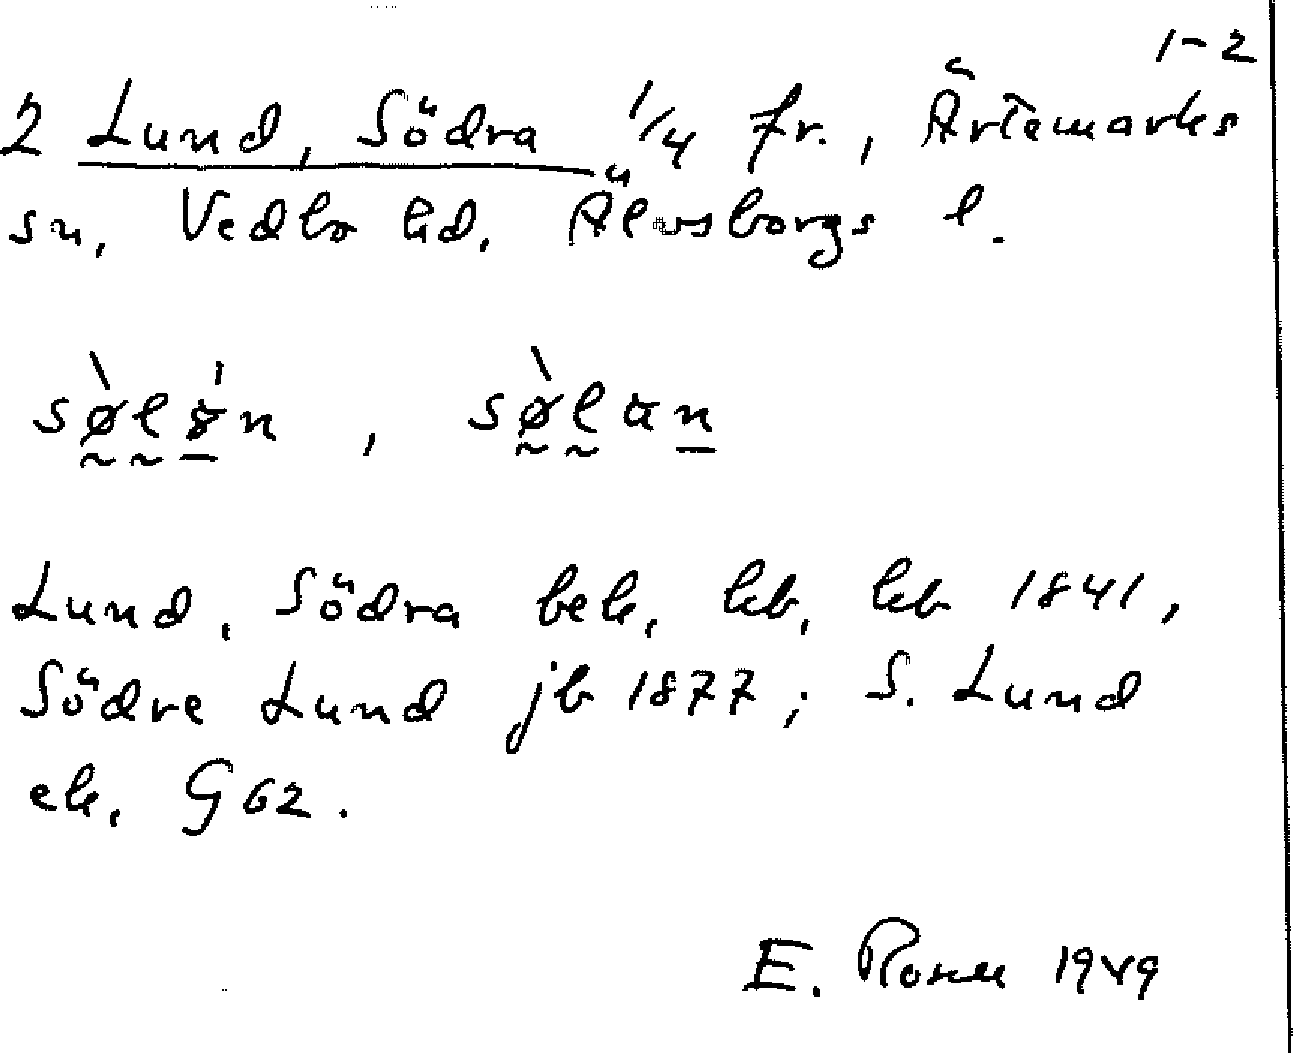 1-2
2 Lund, Södra 1/4 fr., Ärtemarks
sn, Vedbo hd, Älvsborgs l.
Lund, Södra bek, kb, kb 1841,
Södre Lund jb 1877; S. Lund
ek, G 62.
E. 1949